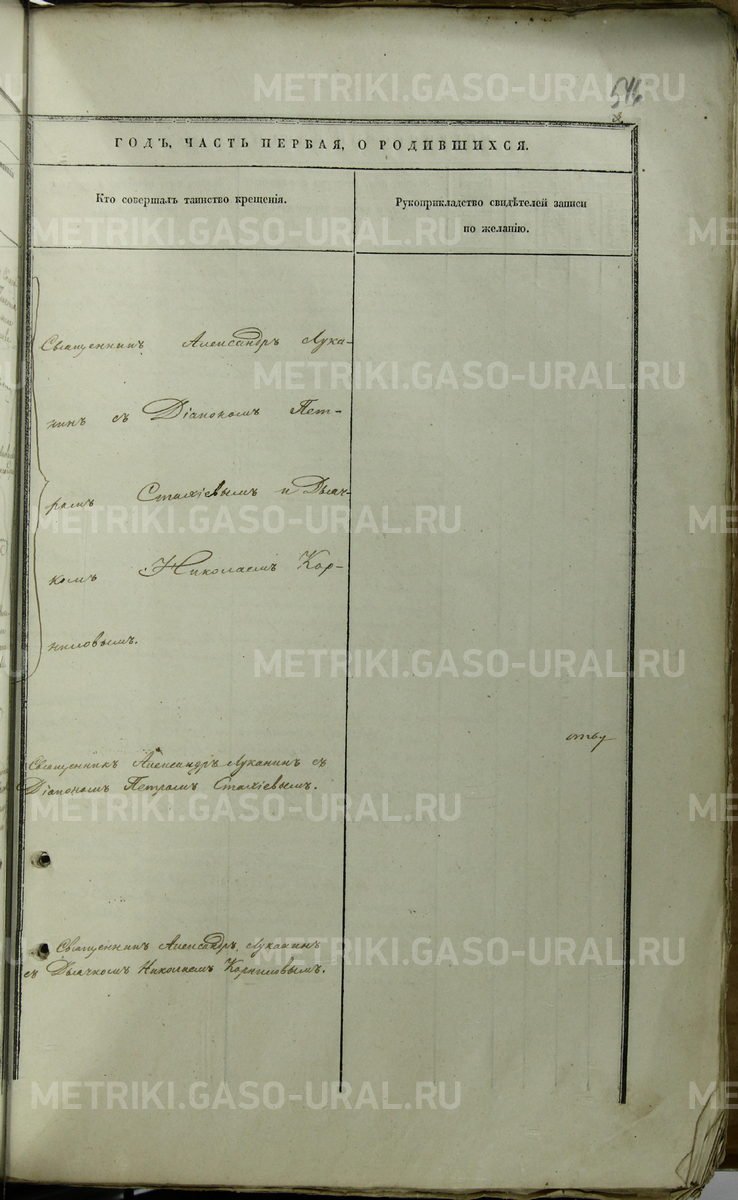 546
ГОДЪ, ЧАСТЬ ПЕРВАЯ, О РОДИВШИХСЯ.
Кто совершалъ таинство крещенія.
Рукоприкладство свидѣтелей записи
по желанію.
Священникъ Александръ Лука-
нинъ съ Діакономъ Пет-
ромъ Стахіевымъ и Дьяч-
комъ Николаемъ Кор-
ниловымъ.
Священникъ Александръ Луканинъ съ
Діакономъ Петромъ Стахіевымъ.
Священникъ Александръ Луканинъ
съ Дьячкомъ Николаемъ Корниловымъ.
METRIKI.GASO-URAL.RU
METRIKI.GASO-URAL.RU
METRIKI.GASO-URAL.RU
METRIKI.GASO-URAL.RU
METRIKI.GASO-URAL.RU
METRIKI.GASO-URAL.RU
METRIKI.GASO-URAL.RU
METRIKI.GASO-URAL.RU